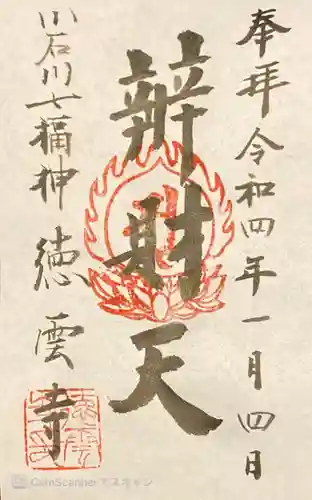 奉拝 令和四年一月四日
辨財天
小石川七福神 徳雲寺
CamScannerでスキャン